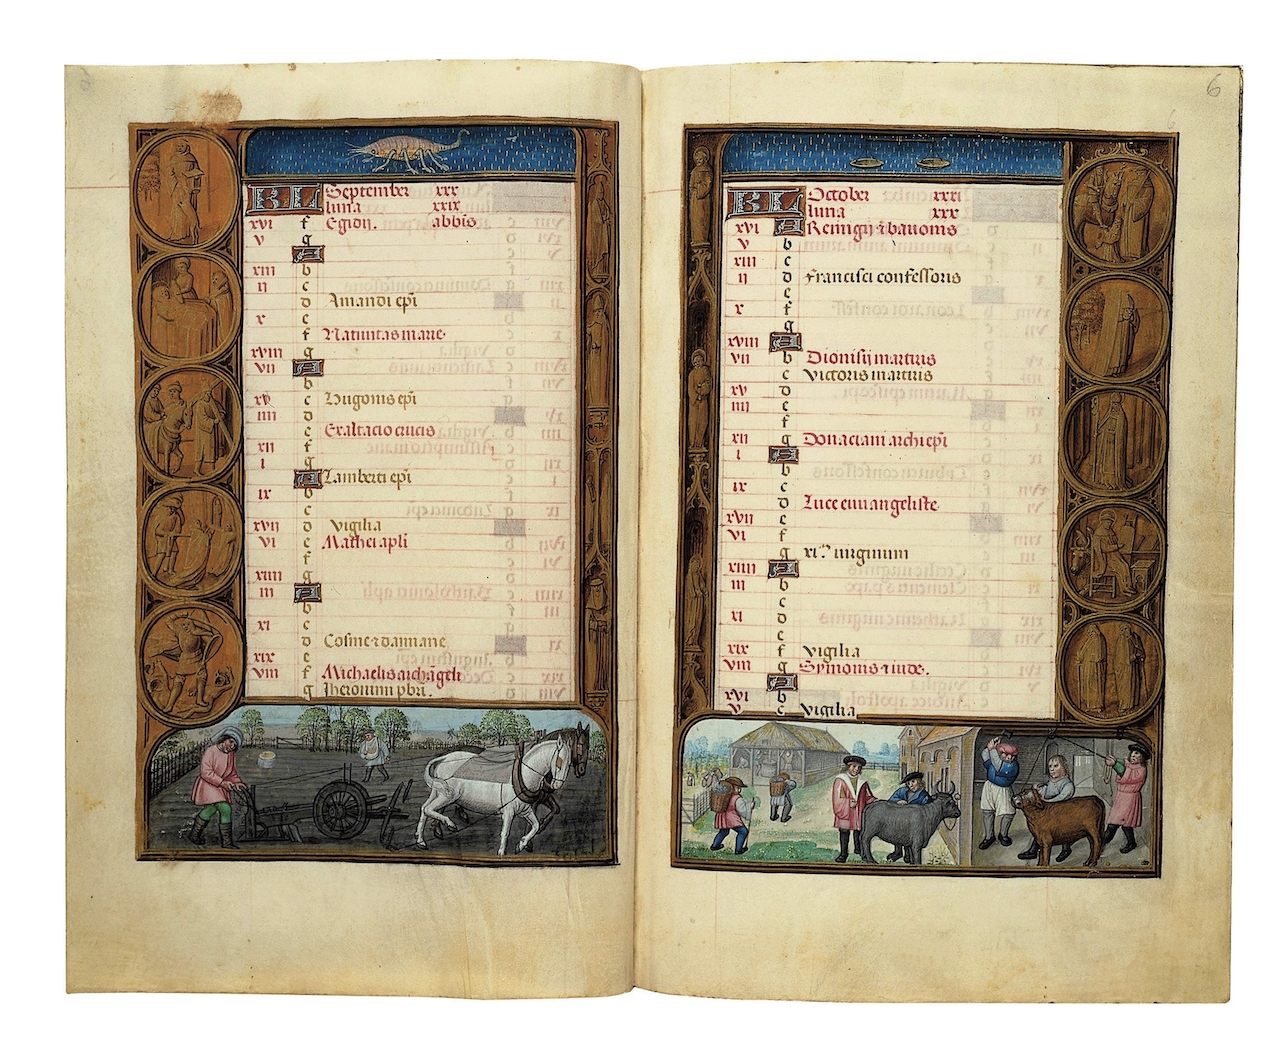 KL September xxx
luna xxix
xvi f Egidij. abbis
v g
A
xiii b
ii c
d Amandi epi
x e
f Natiuitas marie
xviii g
vii A
b
xv c Hugonis epi
iiii d
e Exaltacio crucis
xii f
i g
A Lamberti epi
ix b
c
xvii d Vigilia
vi e Mathei apli
f
xiiii g
iii A
b
xi c
d Cosme et damiane
xix e
viii f Michaelis archageli
g Jheronimi pbri.
6
KL October xxxi
luna xxx
xvi A Remigij et bauonis
v b
xiii c
ii d Francisci confessoris
e
x f
g
xviii A
vii b Dionisij martiris
c Victoris martiris
xv d
iiii e
f
xii g Donaciani archiepi
i A
b
ix c
d Luce euuangeliste
xvii e
vi f
g xi. virginum
xiiii A
iii b
c
xi d
e
xix f Vigilia
viii g Symonis et iude.
A
xvi b
v c Vigilia